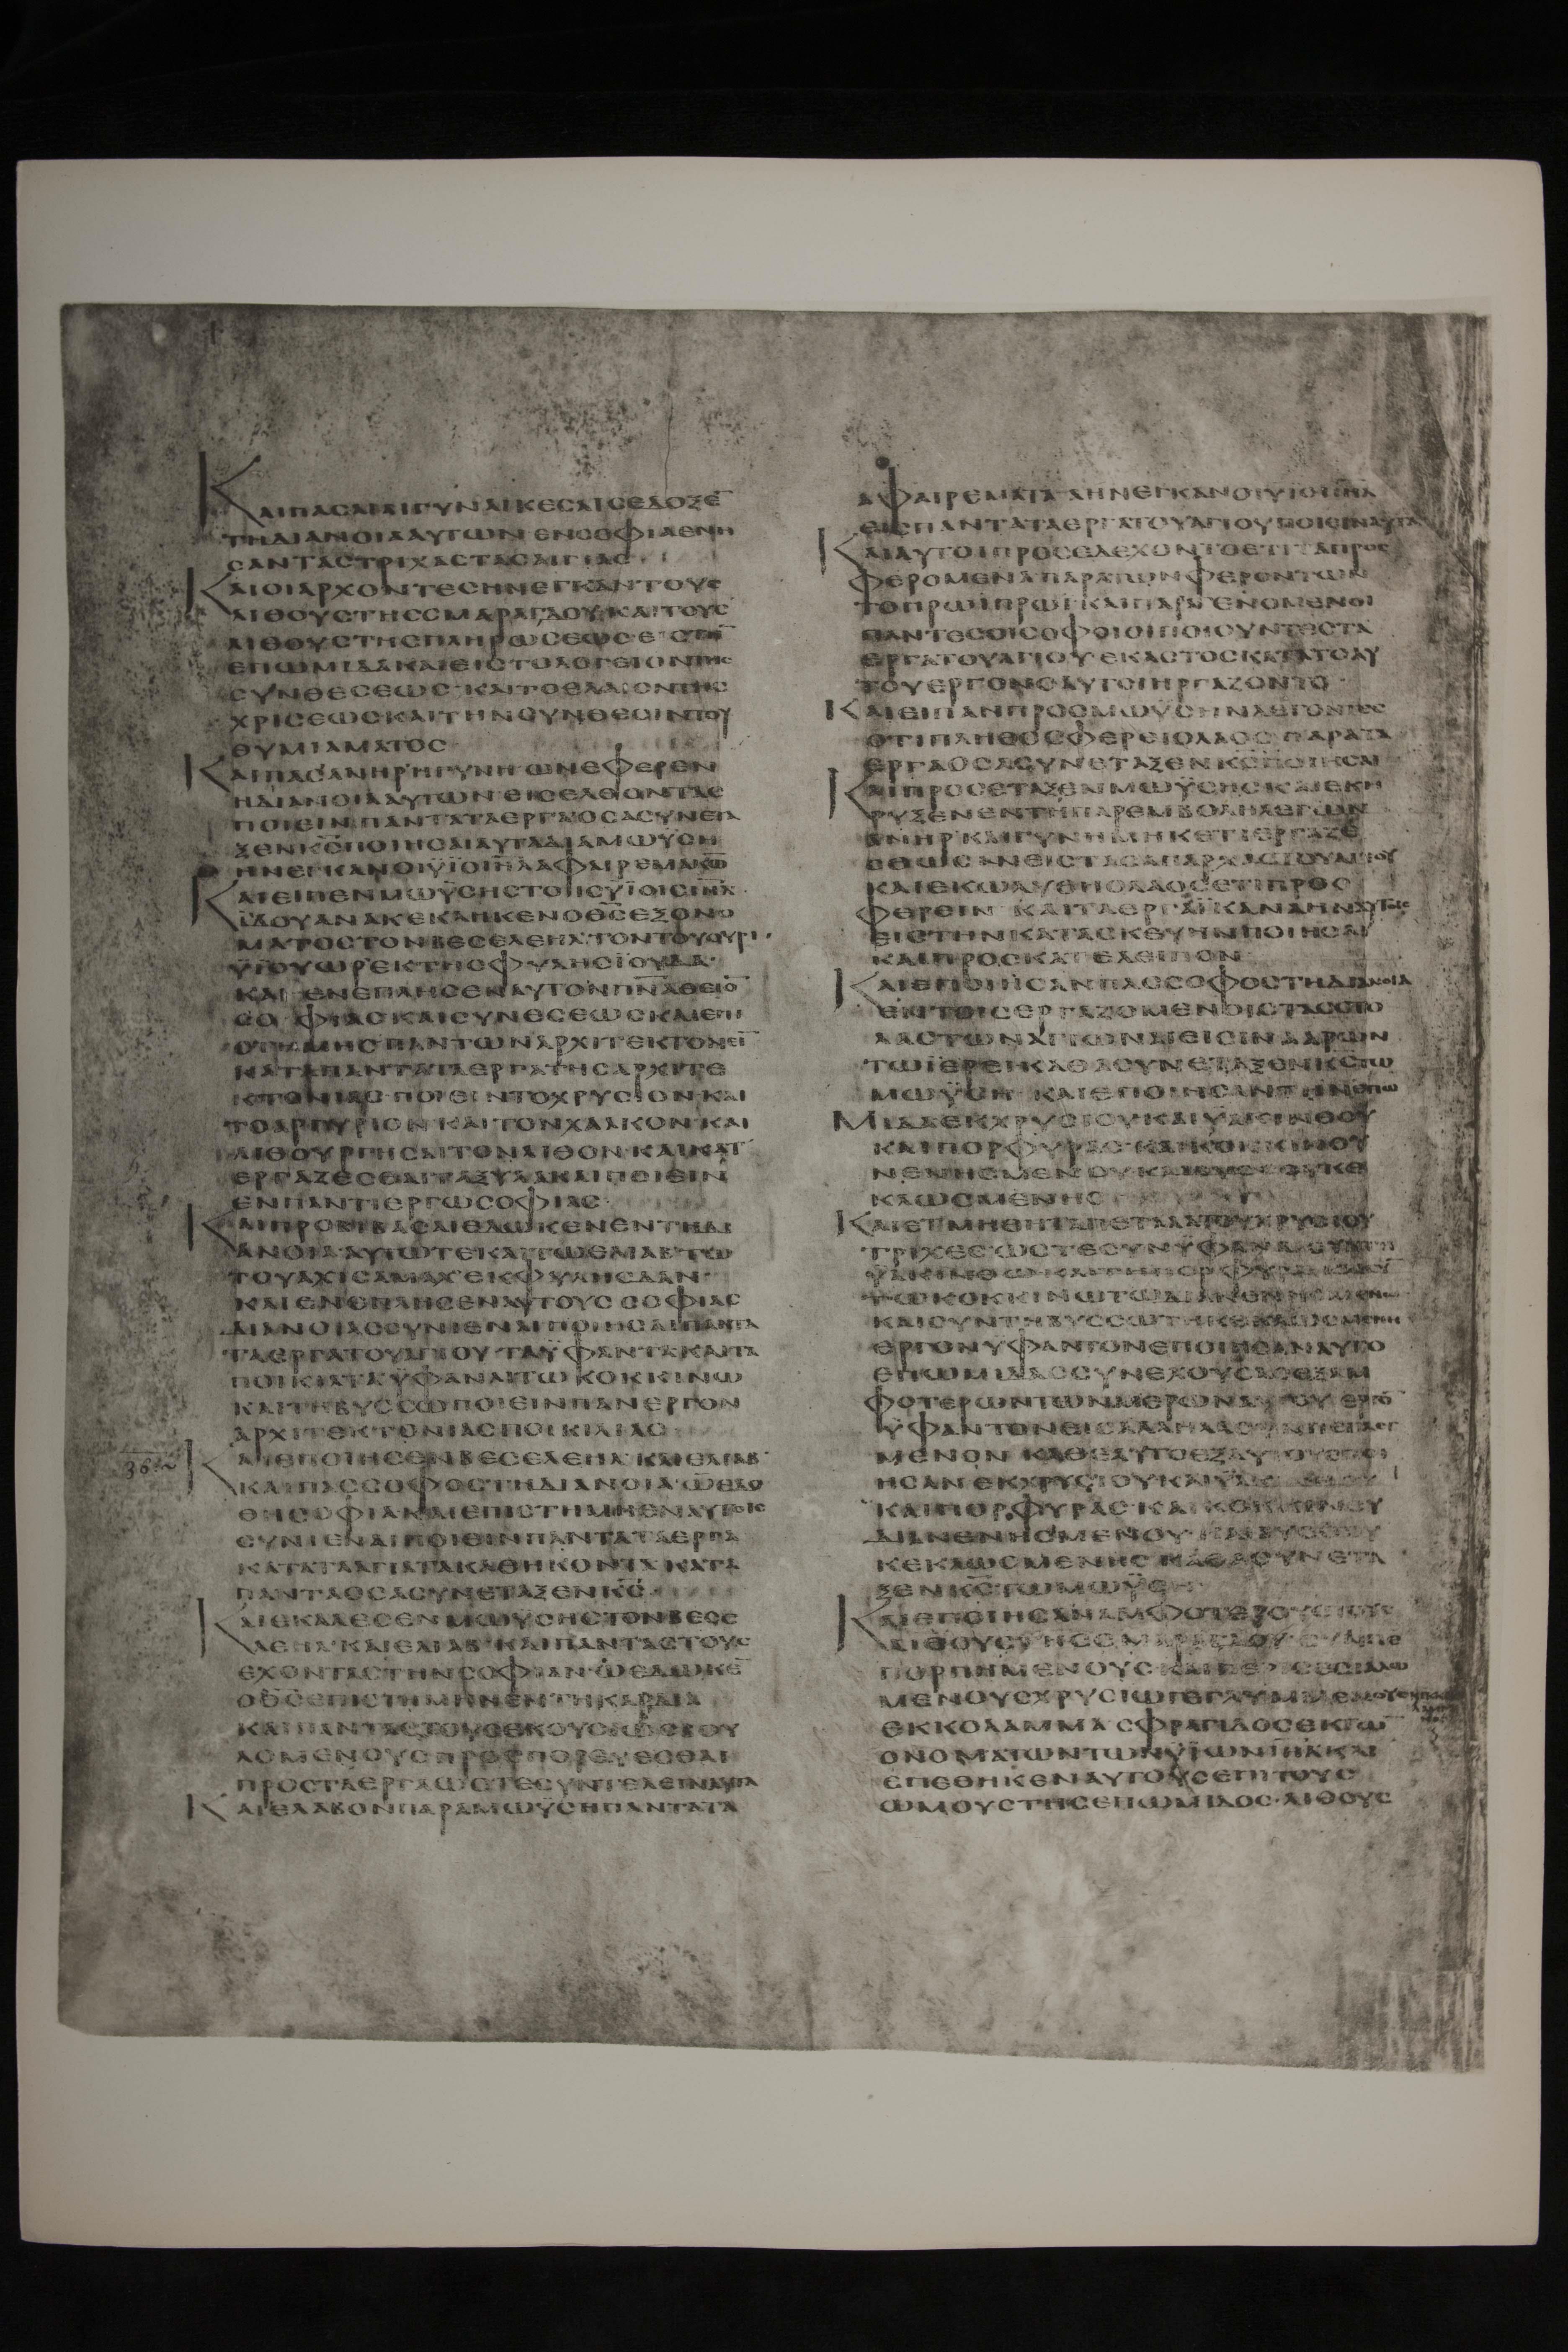 ΚΑΙΠΑΣΑΙΑΙΓΥΝΑΙΚΕΣΑΙΣΕΔΟΞΕ̅
ΤΗΔΙΑΝΟΙΑΑΥΤΩΝΕΝΣΟΦΙΑΕΝΗ
ΣΑΝΤΑΣΤΡΙΧΑΣΤΑΣΑΙΓΙΑΣ
ΚΑΙΟΙΑΡΧΟΝΤΕΣΗΝΕΓΚΑΝΤΟΥΣ
ΛΙΘΟΥΣΤΗΣΣΜΑΡΑΓΔΟΥ·ΚΑΙΤΟΥΣ
ΛΙΘΟΥΣΤΗΣΠΛΗΡΩΣΕΩΣ
ΕΠΩΜΙΔΑΚΑΙΕΙΣΤΟΛΟΓΕΙΟΝ
ΣΥΝΘΕΣΕΩΣ·ΚΑΙΤΟΕΛΑΙΟΝΤΗΣ
ΧΡΙΣΕΩΣΚΑΙΤΗΝΣΥΝΘΕΣΙΝΤΟΥ
ΘΥΜΙΑΜΑΤΟΣ
ΚΑΙΠΑΣΑΝΗΡΗΓΥΝΗΩΝΕΦΕΡΕΝ
ΗΔΙΑΝΟΙΑΑΥΤΩΝΕΙΣΕΛΘΟΝΤΑΣ
ΠΟΙΕΙΝΠΑΝΤΑΤΑΕΡΓΑΟΣΑΣΥΝΕΤΑ
ΞΕΝΚ̅Σ̅ΠΟΙΗΣΑΙΑΥΤΑΔΙΑΜΩΫΣΗ
ΗΝΕΓΚΑΝΟΙΫΪΟΙΙ̅Η̅Λ̅ΑΦΑΙΡΕΜΑΚ̅Ω̅
ΚΑΙΕΙΠΕΝΜΩΫΣΗΣΤΟΙΣΫΪΟΙΣΙ̅Η̅Λ̅·
ΪΔΟΥΑΝΑΚΕΚΛΗΚΕΝΟΘ̅Σ̅ΕΞΟΝΟ
ΜΑΤΟΣΤΟΝΒΕΣΕΛΕΗΛ·ΤΟΝΤΟΥΟΥΡΙ·
ΫΪΟΥΩΡΕΚΤΗΣΦΥΛΗΣΪΟΥΔΑ·
ΚΑΙΕΝΕΠΛΗΣΕΝΑΥΤΟΝΠ̅Ν̅Α̅ΘΕΙΟ̅
ΣΟΦΙΑΣΚΑΙΣΥΝΕΣΕΩΣΚΑΙΕΠΙ
ΣΤΗΜΗΣΠΑΝΤΩΝΑΡΧΙΤΕΚΤΟΝΕΙ̅
ΚΑΤΑΠΑΝΤΑΤΑΕΡΓΑΤΗΣΑΡΧΙΤΕ
ΚΤΟΝΙΑΣ·ΠΟΙΕΙΝΤΟΧΡΥΣΙΟΝΚΑΙ
ΤΟΑΡΓΥΡΙΟΝΚΑΙΤΟΝΧΑΛΚΟΝΚΑΙ
ΛΙΘΟΥΡΓΗΣΑΙΤΟΝΛΙΘΟΝ·ΚΑΙΚΑΤ
ΕΡΓΑΖΕΣΘΑΙΤΑΞΥΛΑΚΑΙΠΟΙΕΙΝ
ΕΝΠΑΝΤΙΕΡΓΩΣΟΦΙΑΣ·
ΚΑΙΠΡΟΒΙΒΑΣΑΙΕΔΩΚΕΝΕΝΤΗΔΙ
ΑΝΟΙΑ·ΑΥΤΩΤΕΚΑΙΤΩΕΛΙΑΒΤΩ
ΤΟΥΑΧΙΣΑΜΑΧ·ΕΚΦΥΛΗΣΔΑΝ·
ΚΑΙΕΝΕΠΛΗΣΕΝΑΥΤΟΥΣΣΟΦΙΑΣ
ΔΙΑΝΟΙΑΣΣΥΝΙΕΝΑΙΠΟΙΗΣΑΙΠΑΝΤΑ
ΤΑΕΡΓΑΤΟΥΑΓΙΟΥ·ΤΑΫΦΑΝΤΑΚΑΙΤΑ
ΠΟΙΚΙΛΤΑΫΦΑΝΑΙΤΩΚΟΚΚΙΝΩ
ΚΑΙΤΗΒΥΣΣΩΠΟΙΕΙΝΠΑΝΕΡΓΟΝ
ΑΡΧΙΤΕΚΤΟΝΙΑΣΠΟΙΚΙΛΙΑΣ
ΚΑΙΕΠΟΙΗΣΕΝΒΕΣΕΛΕΗΛ·ΚΑΙΕΛΙΑΒ·
ΚΑΙΠΑΣΣΟΦΟΣΤΗΔΙΑΝΟΙΑ·ΩΕΔΟ
ΘΗΣΟΦΙΑΚΑΙΕΠΙΣΤΗΜΗΕΝΑΥΤΟΙΣ
ΣΥΝΙΕΝΑΙΠΟΙΕΙΝΠΑΝΤΑΤΑΕΡΓΑ
ΚΑΤΑΤΑΑΓΙΑΤΑΚΑΘΗΚΟΝΤΑΚΑΤΑ
ΠΑΝΤΑΟΣΑΣΥΝΕΤΑΞΕΝΚ̅Σ̅
ΚΑΙΕΚΑΛΕΣΕΝΜΩΫΣΗΣΤΟΝΒΕΣΕ
ΛΕΗΛ·ΚΑΙΕΛΙΑΒ·ΚΑΙΠΑΝΤΑΣΤΟΥΣ
ΕΧΟΝΤΑΣΤΗΝΣΟΦΙΑΝ·ΩΕΔΩΚΕ̅
ΟΘ̅Σ̅ΕΠΙΣΤΗΜΗΝΕΝΤΗΚΑΡΔΙΑ
ΚΑΙΠΑΝΤΑΣΤΟΥΣΕΚΟΥΣΙΩΣΒΟΥ
ΛΟΜΕΝΟΥΣΠΡΟΣΠΟΡΕΥΕΣΘΑΙ
ΠΡΟΣΤΑΕΡΓΑΩΣΤΕΣΥΝΤΕΛΕΙΝΑΥΤΑ
ΚΑΙΕΛΑΒΟΝΠΑΡΑΜΩΫΣΗΠΑΝΤΑΤΑ
ΑΦΑΙΡΕΜΑΤΑΑΗΝΕΓΚΑΝΟΙΥΙΟΙΙ̅Η̅Λ̅
ΕΙΣΠΑΝΤΑΤΑΕΡΓΑΤΟΥΑΓΙΟΥΠΟΙΕΙΝΑΥΤΑ
ΚΑΙΑΥΤΟΙΠΡΟΣΕΔΕΧΟΝΤΟΕΤΙΤΑΠΡΟΣ
ΦΕΡΟΜΕΝΑΠΑΡΑΤΩΝΦΕΡΟΝΤΩΝ
ΤΟΠΡΩΪΠΡΩΪ·ΚΑΙΠΑΡΕΓΕΝΟΜΕΝΟΙ
ΠΑΝΤΕΣΟΙΣΟΦΟΙΟΙΠΟΙΟΥΝΤΕΣΤΑ
ΕΡΓΑΤΟΥΑΓΙΟΥΕΚΑΣΤΟΣΚΑΤΑΤΟΑΥ
ΤΟΥΕΡΓΟΝΟΑΥΤΟΙΗΡΓΑΖΟΝΤΟ·
ΚΑΙΕΙΠΑΝΠΡΟΣΜΩΫΣΗΝΛΕΓΟΝΤΕΣ
ΟΤΙΠΛΗΘΟΣΦΕΡΕΙΟΛΑΟΣΠΑΡΑΤΑ
ΕΡΓΑΟΣΑΣΥΝΕΤΑΞΕΝΚ̅Σ̅ΠΟΙΗΣΑΙ
ΚΑΙΠΡΟΣΕΤΑΞΕΜΜΩΫΣΗΣΚΑΙΕΚΗ
ΡΥΞΕΝΕΝΤΗΠΑΡΕΜΒΟΛΗΛΕΓΩΝ
ΑΝΗΡΚΑΙΓΥΝΗΜΗΚΕΤΙΕΡΓΑΖΕ
ΣΘΩΣΑΝΕΙΣΤΑΣΑΠΑΡΧΑΣΤΟΥΑΓΙΟΥ
ΚΑΙΕΚΩΛΥΘΗΟΛΑΟΣΕΤΙΠΡΟΣ
ΦΕΡΕΙΝ·ΚΑΙΤΑΕΡΓΑΪΚΑΝΑΗΝΑΥΤΟΙΣ
ΕΙΣΤΗΝΚΑΤΑΣΚΕΥΗΝΠΟΙΗΣΑΙ
ΚΑΙΠΡΟΣΚΑΤΕΛΕΙΠΟΝ
ΚΑΙΕΠΟΙΗΣΑΝΠΑΣΣΟΦΟΣΤΗΔΙΑΝΟΙΑ
ΕΝΤΟΙΣΕΡΓΑΖΟΜΕΝΟΙΣΤΑΣΣΤΟ
ΛΑΣΤΩΝΑΓΙΩΝΑΙΕΙΣΙΝΑΑΡΩΝ
ΤΩΪΕΡΕΙΚΑΘΑΣΥΝΕΤΑΞΕΝΚ̅Σ̅ΤΩ
ΜΩΫΣΗ·ΚΑΙΕΠΟΙΗΣΑΝΤΗΝΕΠΩ
ΜΙΔΑΕΚΧΡΥΣΙΟΥΚΑΙΫΑΚΙΝΘΟΥ
ΚΑΙΠΟΡΦΥΡΑΣ·ΚΑΙΚΟΚΚΙΝΟΥ
ΝΕΝΗΣΜΕΝΟΥΚΑΙΒΥΣΣΟΥΚΕ
ΚΛΩΣΜΕΝΗΣ
ΚΑΙΕΤΜΗΘΗΤΑΠΕΤΑΛΑΤΟΥΧΡΥΣΙΟΥ
ΤΡΙΧΕΣΩΣΤΕΣΥΝΫΦΑΝΑΙΣΥΝΤΗ
ΫΑΚΙΝΘΩΚΑΙΤΗΠΟΡΦΥΡΑ
ΤΩΚΟΚΚΙΝΩΤΩΔΙΑΝΕΝΗΣΜΕΝΩ
ΚΑΙΣΥΝΤΗΒΥΣΣΩΤΗΚΕΚΛΩΣΜΕΝΗ
ΕΡΓΟΝΫΦΑΝΤΟΝΕΠΟΙΗΣΑΝΑΥΤΟ
ΕΠΩΜΙΔΑΣΣΥΝΕΧΟΥΣΑΣΕΞΑΜ
ΦΟΤΕΡΩΝΤΩΝΜΕΡΩΝΑΥΤΟΥ·ΕΡΓΟ̅
ΫΦΑΝΤΟΝΕΙΣΑΛΛΗΛΑΣΥΜΠΕΠΛΕΓ
ΜΕΝΟΝ·ΚΑΘΕΑΥΤΟΕΞΑΥΤΟΥΕΠΟΙ
ΗΣΑΝΕΚΧΡΥΣΙΟΥΚΑΙΫΑΚΙΝΘΟΥ
ΚΑΙΠΟΡΦΥΡΑΣ·ΚΑΙΚΟΚΚΙΝΟΥ
ΔΙΑΝΕΝΗΣΜΕΝΟΥ·ΚΑΙΒΥΣΣΟΥ
ΚΕΚΛΩΣΜΕΝΗΣ·ΚΑΘΑΣΥΝΕΤΑ
ΞΕΝΚ̅Σ̅ΤΩΜΩΫΣΗ·
ΚΑΙΕΠΟΙΗΣΑΝΑΜΦΟΤΕΡΟΥΣΤΟΥΣ
ΛΙΘΟΥΣΤΗΣΣΜΑΡΑΓΔΟΥ·ΣΥΜΠΕ
ΠΟΡΠΗΜΕΝΟΥΣΚΑΙΠΕΡΙΣΕΣΙΑΛΩ
ΜΕΝΟΥΣΧΡΥΣΙΩΓΕΓΛΥΜΜΕΝΟΥΣ
ΕΚΚΟΛΑΜΜΑΣΦΡΑΓΙΔΟΣΕΚΤΩ̅
ΟΝΟΜΑΤΩΝΤΩΝΫΪΩΝΙ̅Η̅Λ̅ΚΑΙ
ΕΠΕΘΗΚΕΝΑΥΤΟΥΣΕΠΙΤΟΥΣ
ΩΜΟΥΣΤΗΣΕΠΩΜΙΔΟΣ·ΛΙΘΟΥΣ